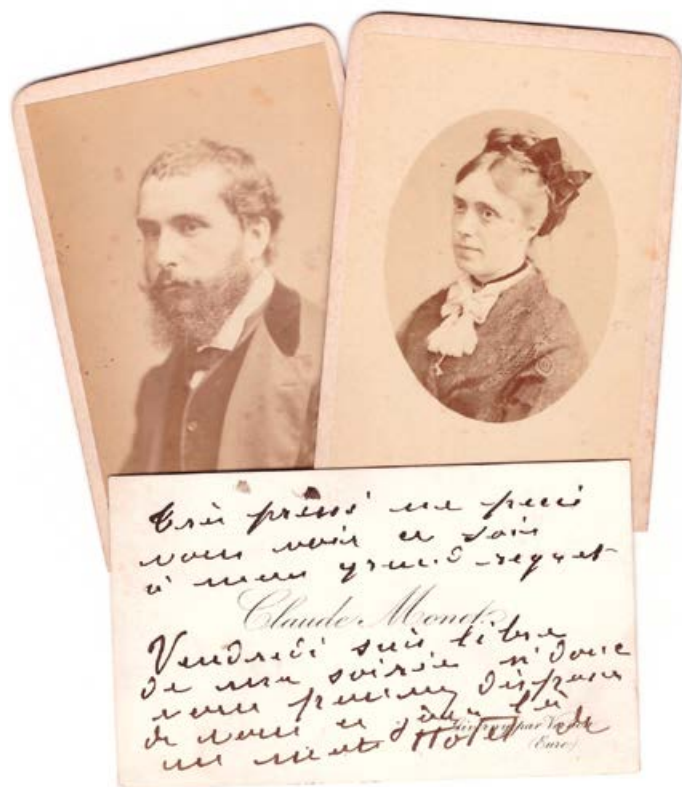 très pressé ne puis
vous voir ce soir
à mon grand regret
Claude Monet
Vendredi suis libre
de ma soirée si donc
vous pouviez disposer
de vous ce jour là
Giverny par Vernon
un mot Hôtel de
(Eure)